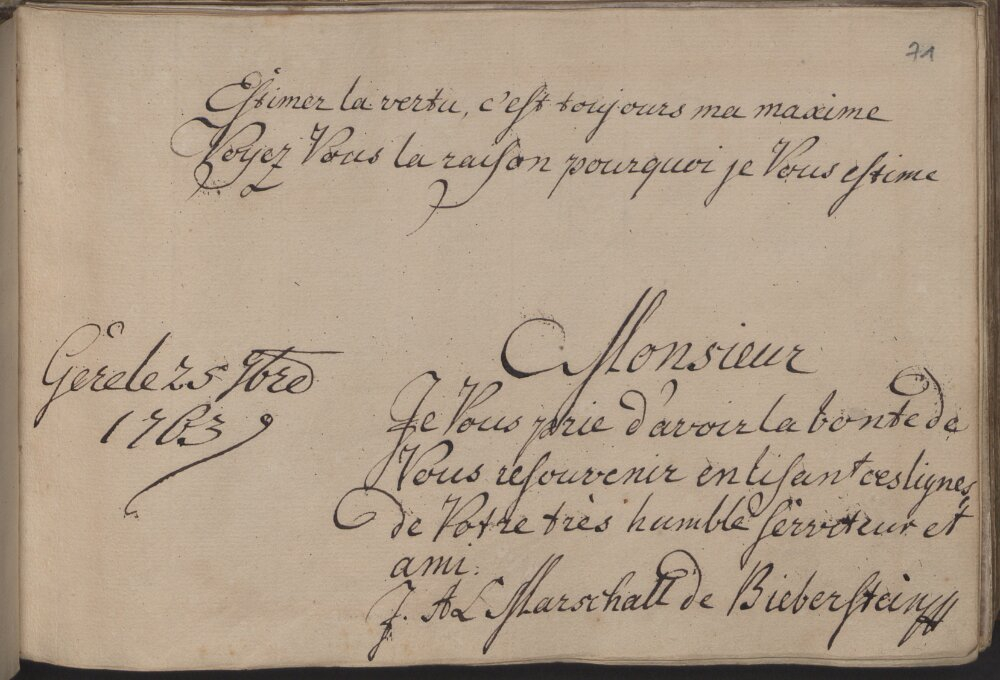 71
Estimer la vertu, c'est toujours ma maxime
Voyez Vous la raison pourquoi je Vous estime
Monsieur
Gere le 25 9bre
1763
Je Vous prie d'avoir la bonte de
Vous resouvenir en lisant ces lignes,
de Votre très humble serviteur et
ami.
J. A L Marschall de Bieberstein